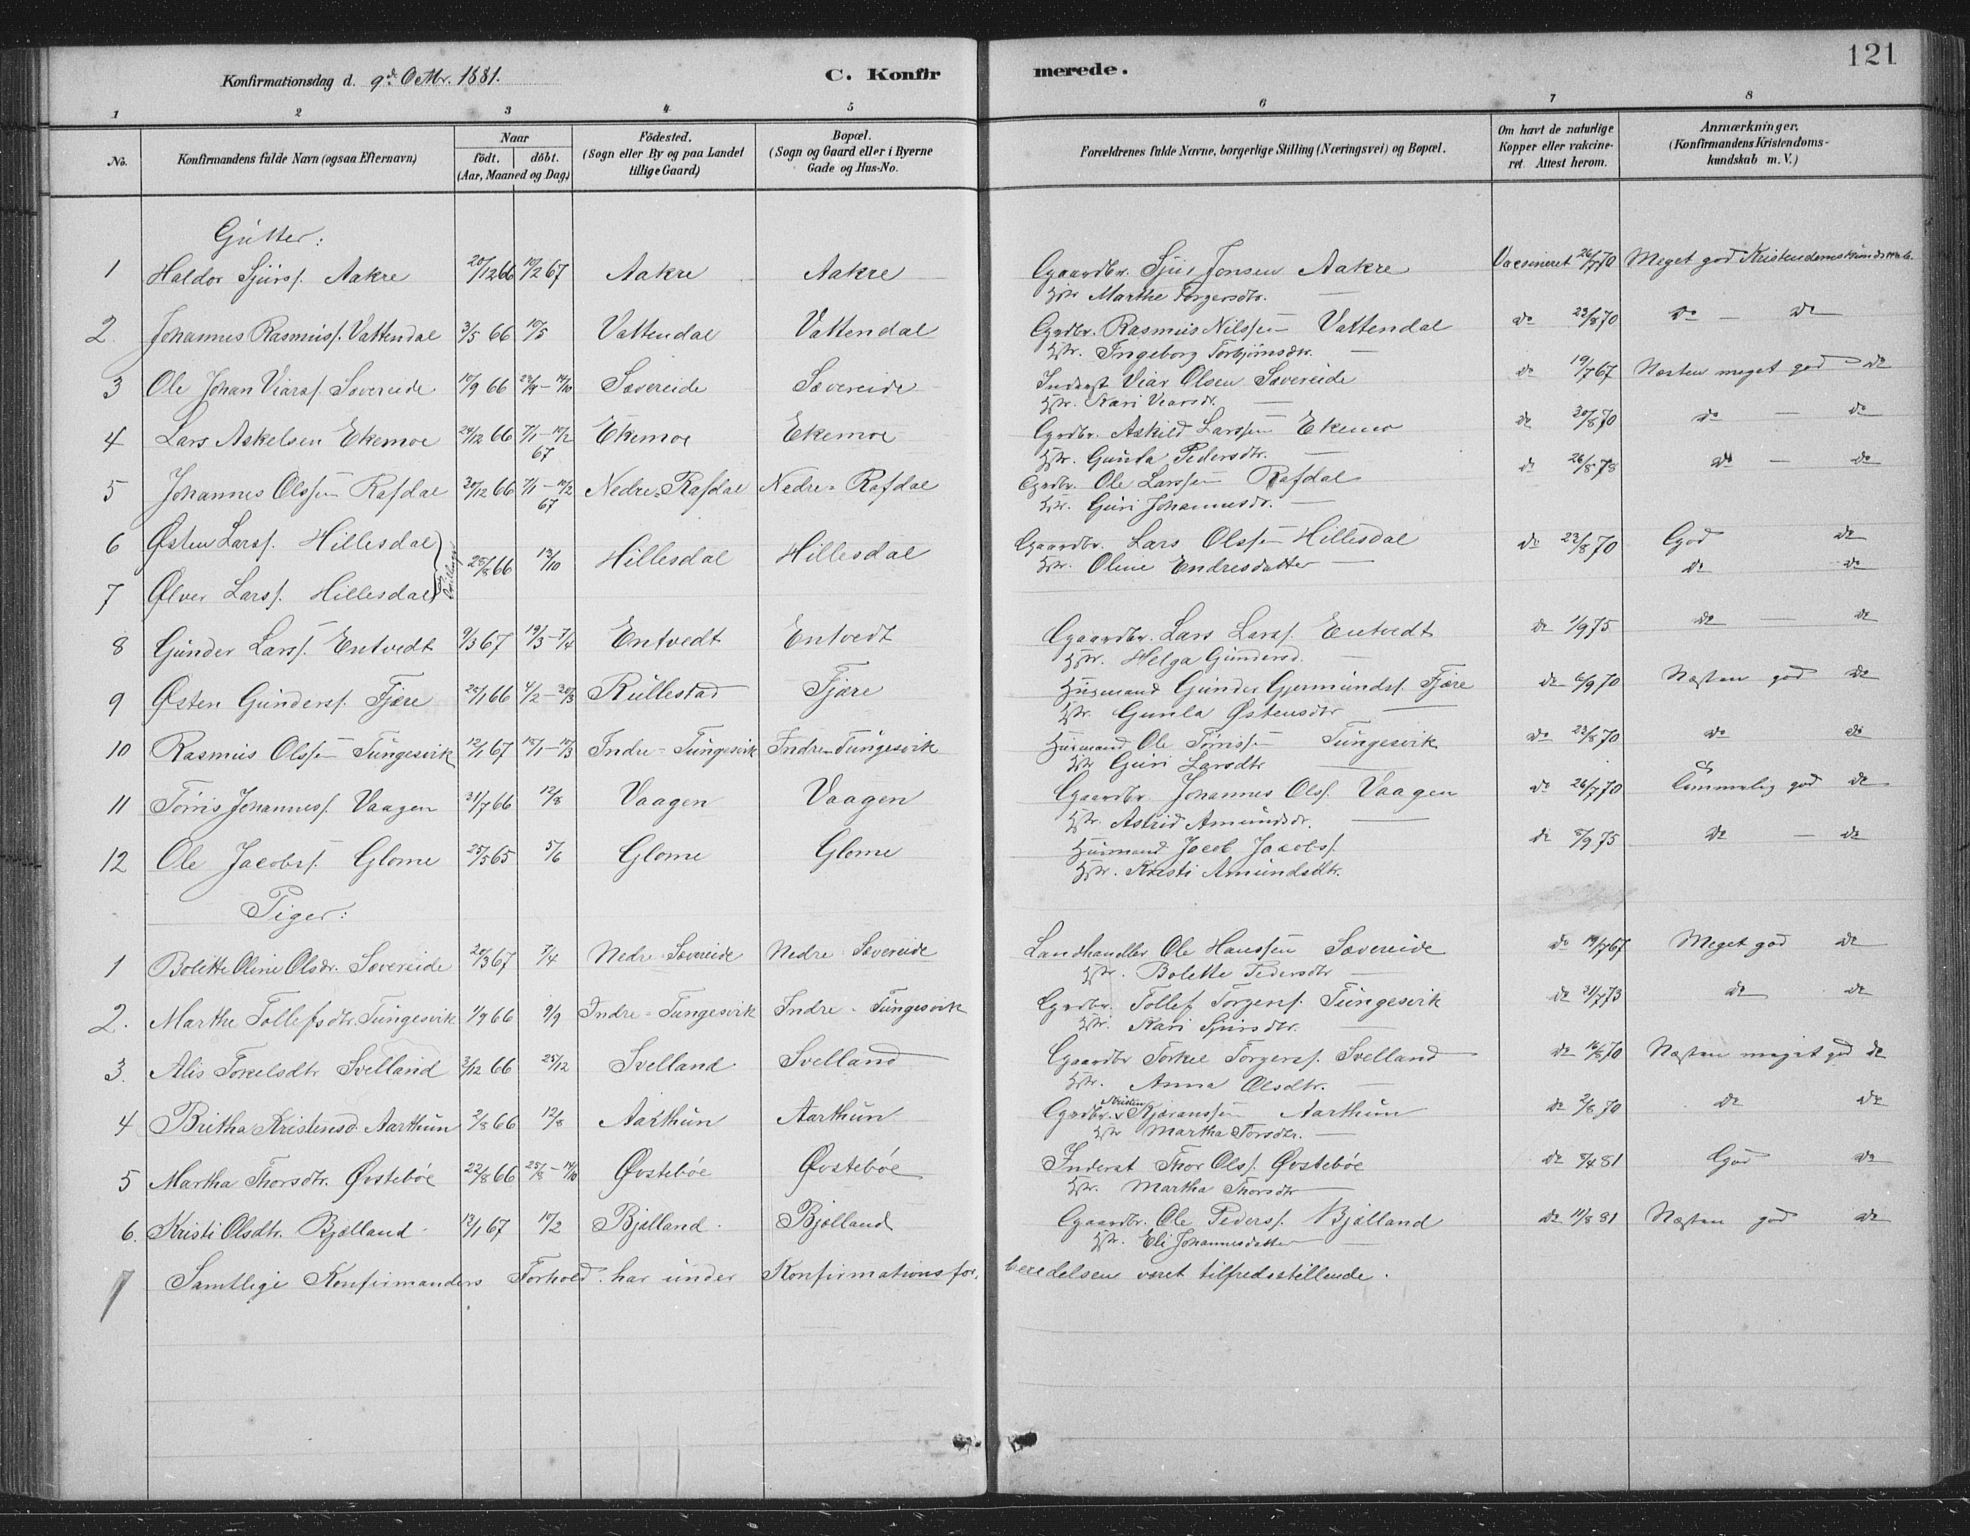 121
Konfirmationsdag d. 9de Octbr. 1881.
C. Konfirmerede.
1 2 3 4 5 6 7 8
No.
Konfirmandens fulde Navn (ogsaa Efternavn)
Naar
födt. döbt.
(Aar, Maaned og Dag)
Födested.
(Sogn eller By og paa Landet
tillige Gaard)
Bopæl.
(Sogn og Gaard eller i Byerne
Gade og Hus-No.
Forældrenes fulde Navne, borgerlige Stilling (Næringsvei) og Bopæl.
Om havt de naturlige
Kopper eller vakcine-
ret. Attest herom.
Anmærkninger.
(Konfirmandens Kristendoms-
kundskab m. V.)
Gutter:
1 Haldor Sjursf. Aakre 20/12 66 10/2 67 Aakre Aakre Gaardbr. Sjur Jonsen Aakre Vaccineret 26/7 70 Meget god Kristendomskundskab
Hstr. Marthe Torgersdtr.
2. Johannes Rasmusf. Vattendal 3/5 66 10/5 Vattendal Vattendal Grdbr. Rasmus Nilssen Vattendal do 22/8 70 do - do
Hstr. Ingeborg Torbjørnsdtr.
3 Ole Johan Viarsf. Sævereide 10/9 66 23/9 - 14/10 Sævereide Sævereide Inderst Viar Olsen Sævereide do 19/7 67 Næsten meget god do
Hstr. Kari Vearsdr.
4 Lars Askelsen Ekemoe 24/12 66 7/1 - 10/2 67 Ekemoe Ekemoe Grdbr. Askild Larssen Ekemo do 30/8 70 do - do
Hstr. Gunla Pedersdtr.
5 Johannes Olssen Rafdal 30/12 66 7/1 - 10/2 67 Nedre-Rafdal Nedre-Rafdal Grdbr. Ole Larssen Rafdal do 26/8 78 do - do
Hstr. Guri Johannesdr.
6 Østen Larsf. Hillesdal Tvillinger 25/8 66 13/10 Hillesdal Hillesdal Gaardbr. Lars Olssen Hillesdal do 23/8 70 God do
Hstr. Oline Endresdatter do do
7 Ølver Larsf. Hillesdal
8 Gunder Larsf. Entvedt 9/3 67 19/3 - 7/4 Entvedt Entvedt Gaardbr. Lars Larsf. Entvedt do 1/9 75 do - do
Hstr. Helga Gundersd.
9 Østen Gundersf. Fjære 22/1 66 4/2 - 30/3 Rullestad Fjære Husmand Gunder Germundsf. Fjære do 6/9 70 Næsten god do
Hstr. Gunla Østensdtr
10 Rasmus Olssen Tungesvik 12/1 67 15/1 - 17/3 Indre-Tungesvik Indre-Tungesvik Husmand Ole Tørrissen Tungesvik do 23/8 70 do do
Hstr Guri Larsdtr
11 Tørris Johannesf. Vaagen 31/7 66 12/8 Vaagen Vaagen Gaardbr Johannes Olsf. Vaagen do 26/7 70 Temmelig god do
Hstr. Astrid Amundsdr.
12 Ole Jacobsf. Glome 25/5 65 5/6 Glome Glome Husmand Jacob Jacobsf. do 5/9 75 do - do
Hstr. Kristi Amundsdtr.
Piger:
1 Bolette Oline Olsdr. Sævereide 20/3 67 7/4 Nedre Sævereide Nedre Sævereide Landhandler Ole Hanssen Sævereide do 19/7 67 Meget god do
Hstr. Bolette Pedersdtr
2. Marthe Tollefsdtr. Tungesvik 1/9 66 9/9 Indre-Tungesvik Indre-Tungesvik Grdbr. Tollef Torgersf. Tungesvik do 21/7 73 do do
Hstr. Kari Sjursdtr.
3. Alis Torkelsdtr Svelland 3/12 66 25/12 Svelland Svelland Gaardbr Torkel Torgersf. Svelland do 16/8 70 Næsten meget god do
Hstr. Anna Olsdtr.
4 Britha Kristensd. Aarthun 2/8 66 12/8 Aarthun Aarthun Grdbr. Kristen Kjøranssen Aarthun do 2/8 70 do do
Hstr Martha Torsdtr.
5 Martha Thorsdtr. Øvstebøe 22/8 66 25/8 - 14/10 Øvstebøe Øvstebøe Inderst Thor Olsf. Øvstebøe do 8/4 81 God do
Hstr. Martha Thorsdtr
6. Kristi Olsdtr. Bjælland 12/1 67 10/2 Bjælland Bjælland Gaardbr. Ole Pedersf. Bjælland do 11/8 81 Næsten god do
Hstr. Eli Johannesdatter
7 Samtlige Konfirmanders Forhold har under Konfirmationsforberedelsen været tilfredsstillende.